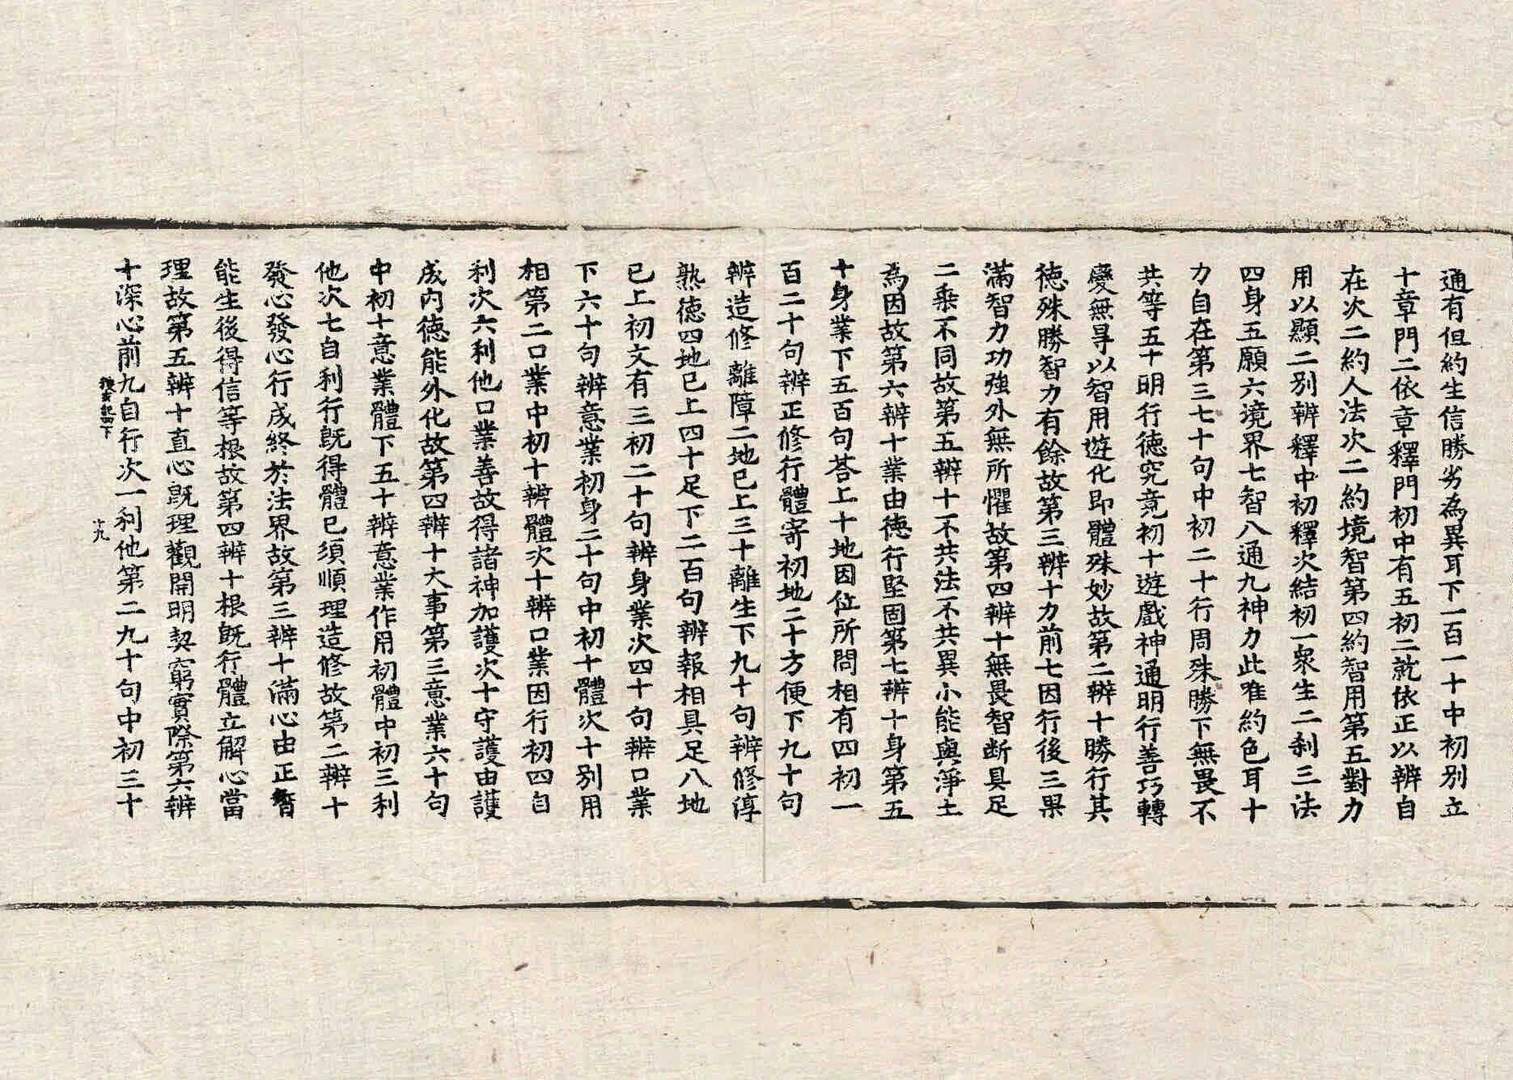 通有但約生信勝劣為異耳下一百一十中初別立
十章門二依章釋門初中有五初二就依正以辨自
在次二約人法次二約境智第四約智用第五對力
用以顯二別辨釋中初釋次結初一衆生二刹三法
四身五願六境界七智八通九神力此唯約色耳十
力自在第三七十句中初二十行周殊勝下無畏不
共等五十明行德究竟初十遊戲神通明行善巧轉
變無㝵以智用遊化即體殊妙故第二辨十勝行其
德殊勝智力有餘故第三辨十力前七因行後三果
滿智力功強外無所懼故第四辨十無畏智斷具足
二乘不同故第五辨十不共法不共異小能與淨土
為因故第六辨十業由德行堅固第七辨十身第五
十身業下五百句答上十地因位所問相有四初一
百二十句辨正修行體寄初地二十方便下九十句
辨造修離障二地已上三十離生下九十句辨修淳
熟德四地已上四十足下二百句辨報相具足八地
已上初文有三初二十句辨身業次四十句辨口業
下六十句辨意業初身二十句中初十體次十別用
相第二口業中初十辨體次十辨口業因行初四自
利次六利他口業善故得諸神加護次十守護由護
成內德能外化故第四辨十大事第三意業六十句
中初十意業體下五十辨意業作用初體中初三利
他次七自利行既得體已須順理造修故第二辨十
發心發心行成終於法界故第三辨十滿心由正智
能生後得信等根故第四辨十根既行體立解心當
理故第五辨十直心既理觀開明契窮實際第六辨
十深心前九自行次一利他第二九十句中初三十
十九